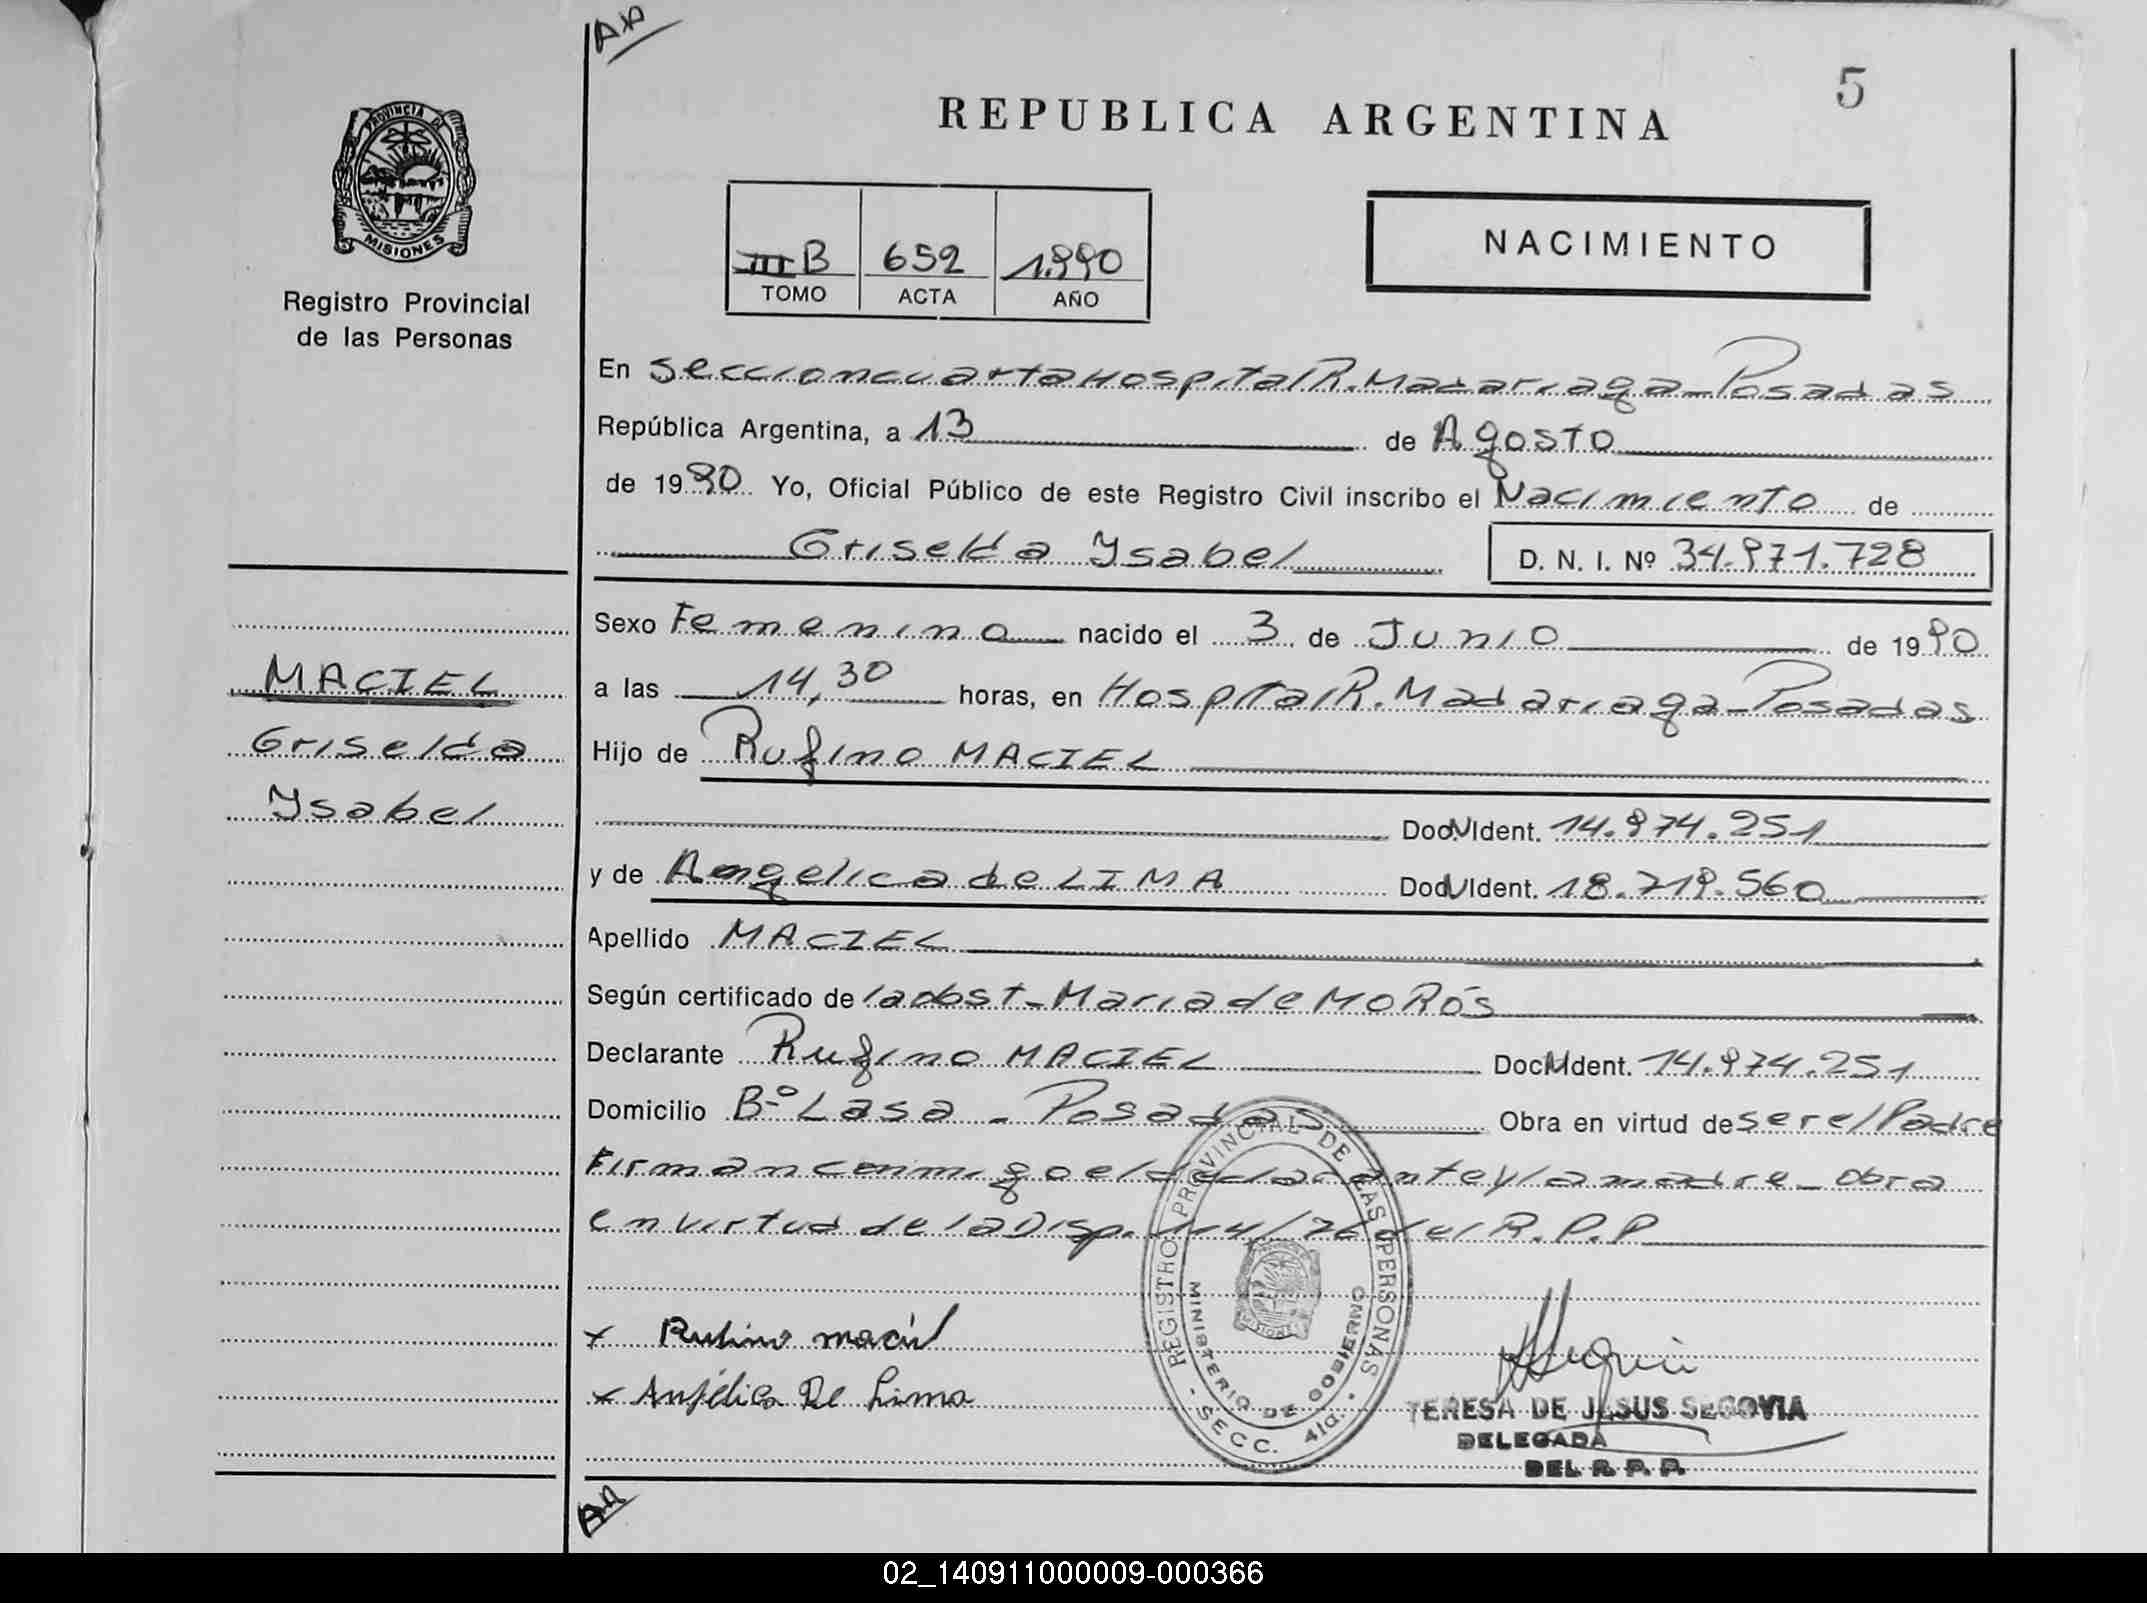 AA
5
REPUBLICA ARGENTINA
PROVINCIA DE
MISIONES
Registro Provincial
de las Personas
NACIMIENTO
III B 652 1.990
TOMO ACTA AÑO
En Seccion cuarta Hospital R. Madariaga - Posadas
República Argentina, a 13 de Agosto
de 1990 Yo, Oficial Público de este Registro Civil inscribo el Nacimiento de
Griselda Ysabel D. N. I. Nº 34.971.728
Sexo Femenino nacido el 3 de Junio de 1990
MACIEL
a las 14,30 horas, en Hospital R. Madariaga - Posadas
Griselda
Hijo de Rufino MACIEL
Ysabel
Doc.N Ident. 14.974.251
y de Angelica de LIMA Doc.N Ident. 18.719.560
Apellido MACIEL
Según certificado de la obst - Maria de MORós
Declarante Rufino MACIEL Doc.N Ident. 14.974.251
Domicilio Bº Lasa - Posadas Obra en virtud de ser el Padre
Firman conmigo el declarante y la madre - obra
en virtud de la Disp. 114/76 del R.P.P
x Rufino maciel
x Anjélica De Lima
REGISTRO PROVINCIAL DE LAS PERSONAS
MINISTERIO DE GOBIERNO
MISIONES
- SECC. 4ta. -
TERESA DE JESUS SEGOVIA
DELEGADA
DEL R. P. P.
AA
02_140911000009-000366